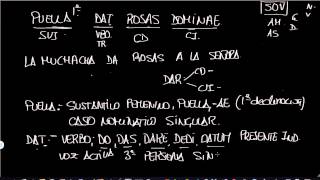 PUELLA 1ª DAT ROSAS DOMINAE
SUJ VBO TR CD CI.
SOV
N.
V.
AM
AS
G
D.
LA MUCHACHA DA ROSAS A LA SEÑORA
DAR CD
CI.
PUELLA.- SUSTANTIVO FEMENINO, PUELLA,-AE (1ª DECLINACIÓN)
CASO NOMINATIVO SINGULAR.
DAT.- VERBO; DO, DAS, DARE, DEDI, DATUM PRESENTE IND.
VOZ ACTIVA, 3ª PERSONA SIN